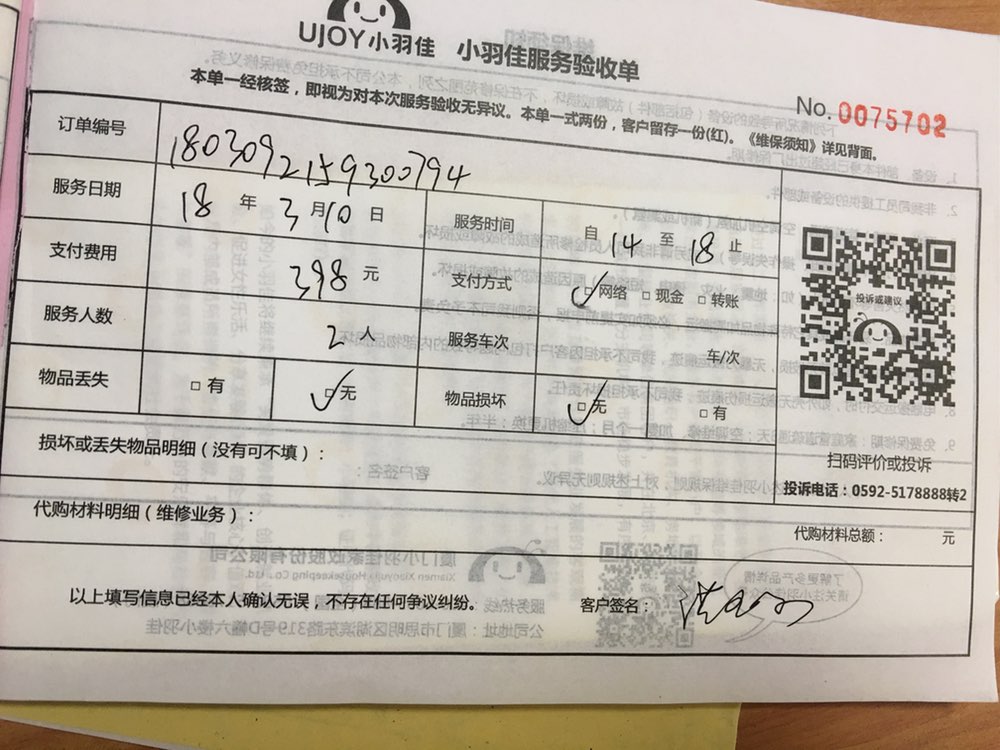 UJOY小羽佳 小羽佳服务验收单
本单一经核签，即视为对本次服务验收无异议。本单一式两份，客户留存一份(红)。《维保须知》详见背面。
No. 0075702
订单编号 180309215930079​4
服务日期 18 年 3 月 10 日 服务时间 自 14 至 18 止
支付费用 398 元 支付方式 ✓□网络 □现金 □转账
服务人数 2人 服务车次 车/次
物品丢失 □有 ✓□无 物品损坏 ✓□无 □有
投诉或建议
扫码评价或投诉
投诉电话：0592-5178888转2
损坏或丢失物品明细（没有可不填）：
代购材料明细（维修业务）：
代购材料总额： 元
以上填写信息已经本人确认无误，不存在任何争议纠纷。 客户签名：